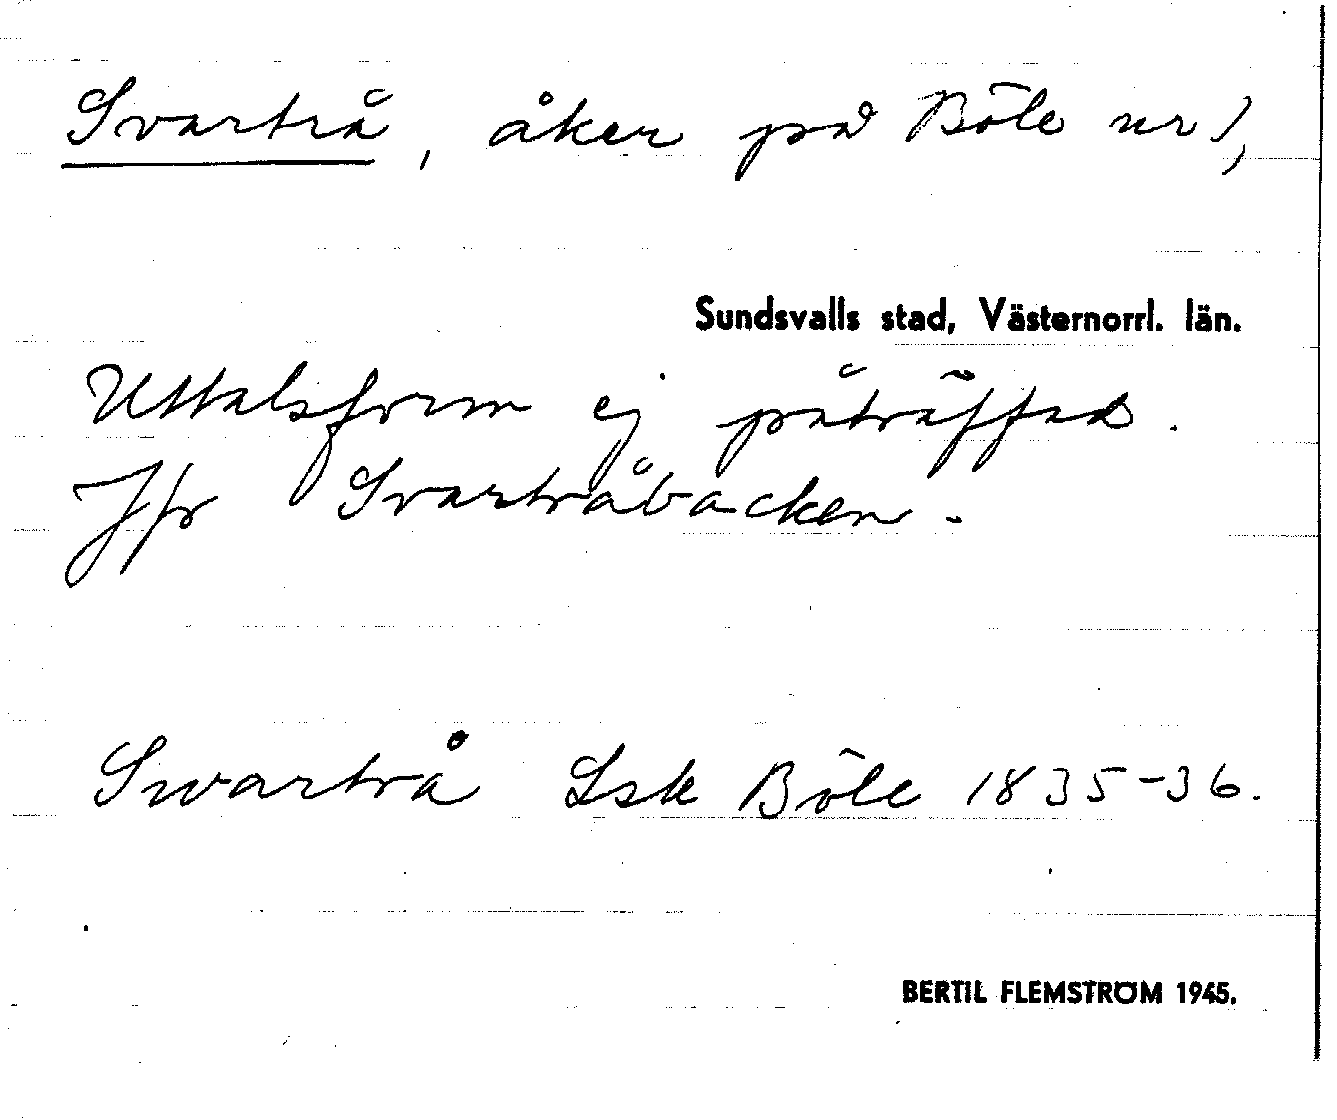 Svartrå, åker på Böle nr 1,
Sundsvalls stad, Västernorrl. län.
Uttalsform ej påträffad.
Jfr Svartråbacken.
Swartrå Lsk Böle 1835-36.
BERTIL FLEMSTRÖM 1945.